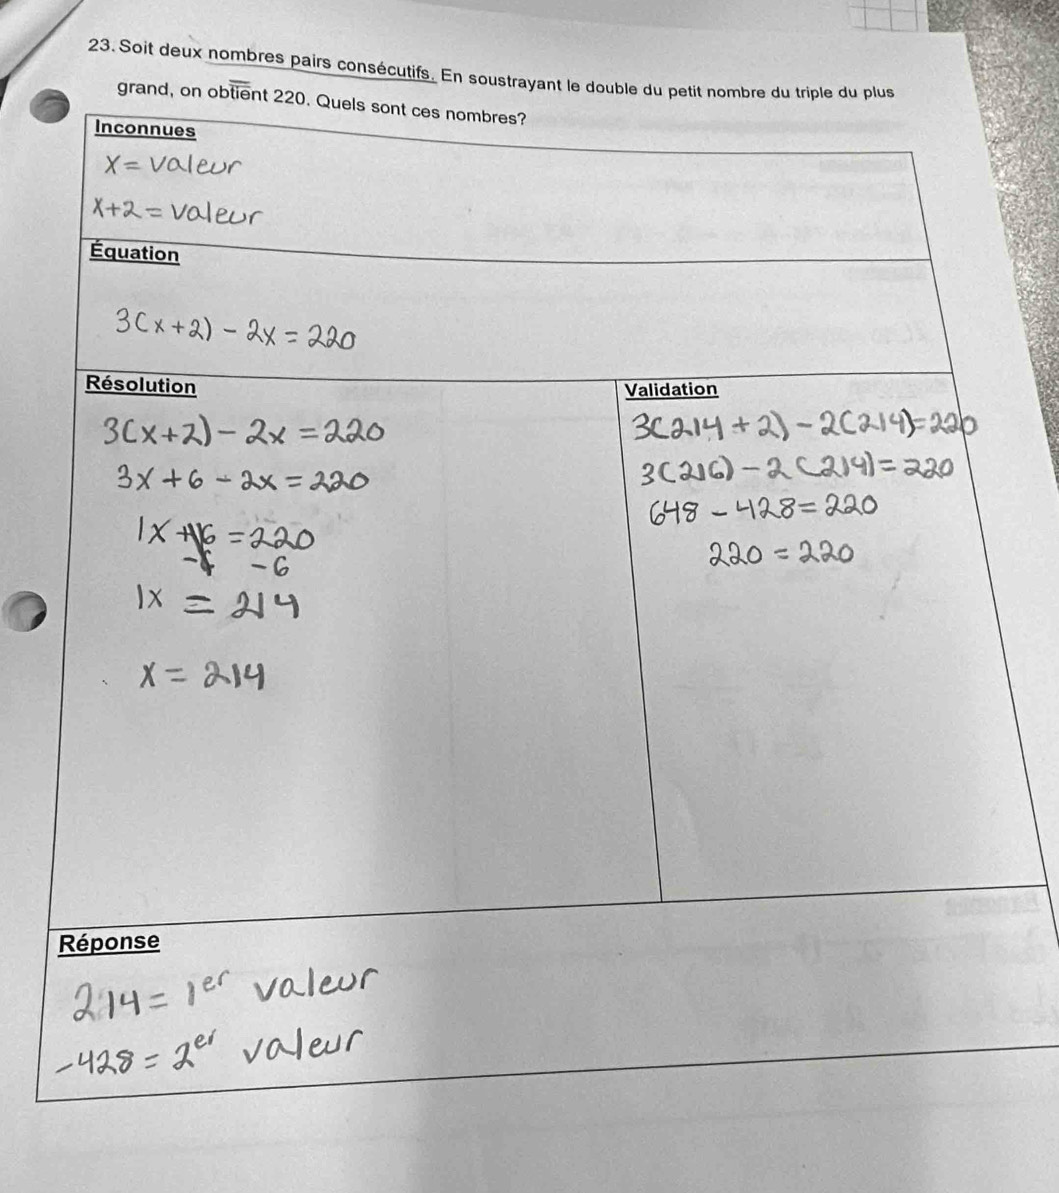 23. Soit deux nombres pairs consécutifs. En soustrayant le double du petit nombre du triple du plus
grand, on obtient 220. Quels sont ces nombres?
Inconnues
x = valeur
x+2 = valeur
Équation
3(x+2) - 2x = 220
Résolution
3(x+2) - 2x = 220
3x + 6 - 2x = 220
1x + 6 = 220
-6 -6
1x = 214
x = 214
Validation
3(214 + 2) - 2(214) = 220
3(216) - 2(214) = 220
648 - 428 = 220
220 = 220
Réponse
214 = 1er valeur
-428 = 2er valeur